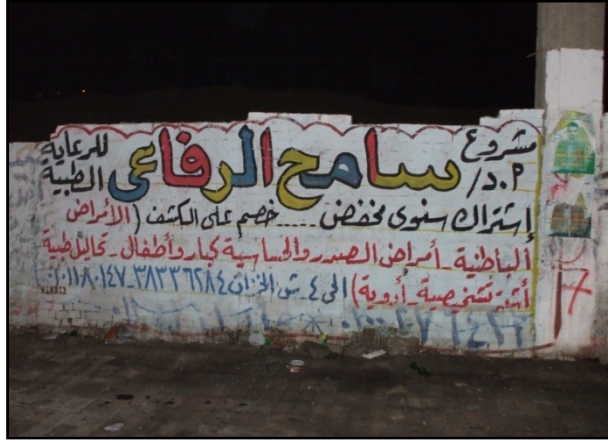 مشروع
م.د/ سامح الرفاعى للرعاية الطبية
إشتراك سنوى مخفض .... خصم على الكشف (الأمراض
الباطنية - أمراض الصدر والحساسية كبار وأطفال - تحاليل طبية
أشعة تشخيصية - أدوية) الحى ٤ - ش الخزان